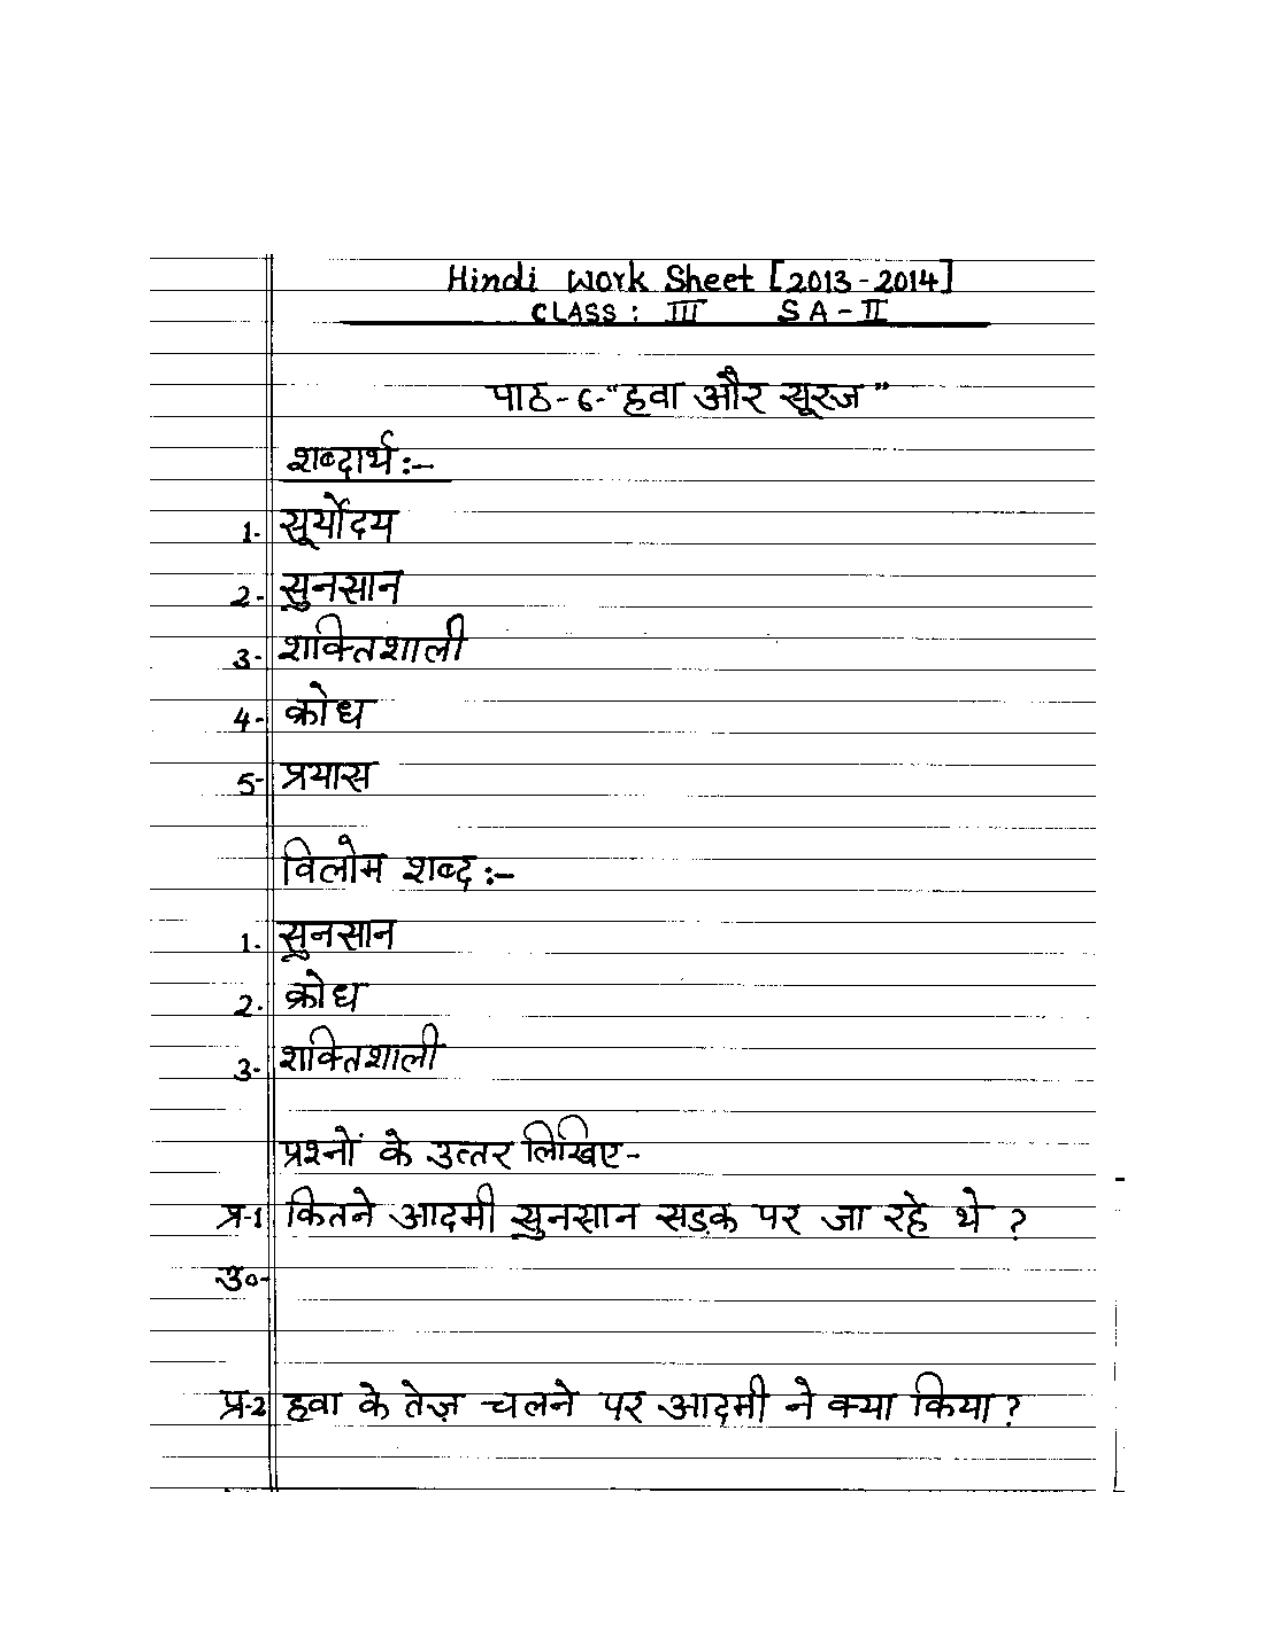 Hindi Work Sheet [2013-2014]
CLASS: III SA-II
पाठ-6-"हवा और सूरज"
शब्दार्थ:-
1- सूर्योदय
2- सुनसान
3- शक्तिशाली
4- क्रोध
5- प्रयास
विलोम शब्द:-
1- सुनसान
2- क्रोध
3- शक्तिशाली
प्रश्नों के उत्तर लिखिए-
प्र-1 कितने आदमी सुनसान सड़क पर जा रहे थे ?
उ०-
प्र-2 हवा के तेज़ चलने पर आदमी ने क्या किया ?